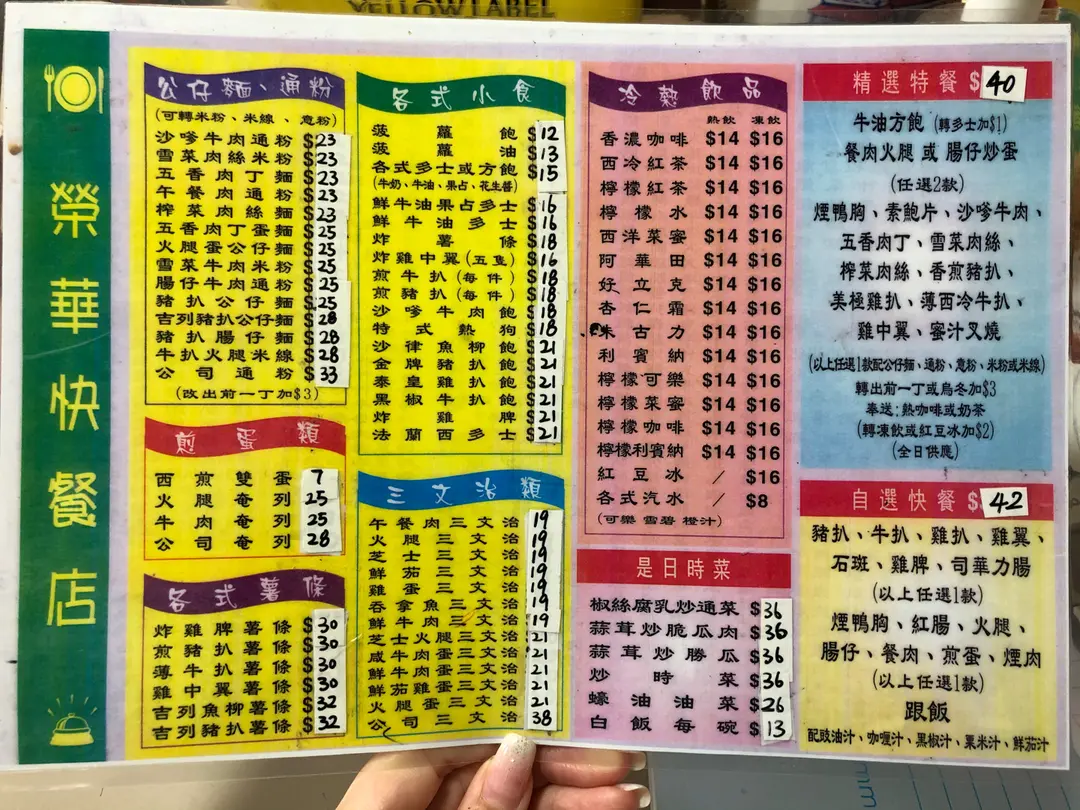 YELLOW LABEL
榮華快餐店
公仔麵、通粉
(可轉米粉、米線、意粉)
沙嗲牛肉通粉 $23
雪菜肉絲米粉 $23
五香肉丁麵 $23
午餐肉通粉 $23
榨菜肉絲麵 $23
五香肉丁蛋麵 $25
火腿蛋公仔麵 $25
雪菜牛肉米粉 $25
腸仔牛肉通粉 $25
豬扒公仔麵 $25
吉列豬扒公仔麵 $28
豬扒腸仔麵 $28
牛扒火腿米線 $28
公司通粉 $33
(改出前一丁加$3)
煎蛋類
西煎雙蛋 7
火腿奄列 25
牛肉奄列 25
公司奄列 28
各式薯條
炸雞脾薯條 $30
煎豬扒薯條 $30
薄牛扒薯條 $30
雞中翼薯條 $30
吉列魚柳薯條 $32
吉列豬扒薯條 $32
各式小食
菠蘿飽 $12
菠蘿油 $13
各式多士或方飽 $15
(牛奶、牛油、果占、花生醬)
鮮牛油果占多士 $16
鮮牛油多士 $16
炸薯條 $18
炸雞中翼(五隻) $16
煎牛扒(每件) $18
煎豬扒(每件) $18
沙嗲牛肉飽 $18
特式熱狗 $18
沙律魚柳飽 $21
金牌豬扒飽 $21
泰皇雞扒飽 $21
黑椒牛扒飽 $21
炸雞脾 $21
法蘭西多士 $21
三文治類
午餐肉三文治 19
火腿三文治 19
芝士三文治 19
鮮茄三文治 19
雞蛋三文治 19
吞拿魚三文治 19
鮮牛肉三文治 19
芝士火腿三文治 21
咸牛肉蛋三文治 21
鮮牛肉蛋三文治 21
鮮茄雞蛋三文治 21
火腿蛋三文治 21
公司三文治 38
冷熱飲品
熱飲 凍飲
香濃咖啡 $14 $16
西冷紅茶 $14 $16
檸檬紅茶 $14 $16
檸檬水 $14 $16
西洋菜蜜 $14 $16
阿華田 $14 $16
好立克 $14 $16
杏仁霜 $14 $16
朱古力 $14 $16
利賓納 $14 $16
檸檬可樂 $14 $16
檸檬菜蜜 $14 $16
檸檬咖啡 $14 $16
檸檬利賓納 $14 $16
紅豆冰 / $16
各式汽水 / $8
(可樂 雪碧 橙汁)
是日時菜
椒絲腐乳炒通菜 $36
蒜茸炒脆瓜肉 $36
蒜茸炒勝瓜 $36
炒時菜 $36
蠔油油菜 $26
白飯每碗 $13
精選特餐 $40
牛油方飽 (轉多士加$1)
餐肉火腿 或 腸仔炒蛋
(任選2款)
煙鴨胸、素鮑片、沙嗲牛肉、
五香肉丁、雪菜肉絲、
榨菜肉絲、香煎豬扒、
美極雞扒、薄西冷牛扒、
雞中翼、蜜汁叉燒
(以上任選1款配公仔麵、通粉、意粉、米粉或米線)
轉出前一丁或烏冬加$3
奉送:熱咖啡或奶茶
(轉凍飲或紅豆冰加$2)
(全日供應)
自選快餐 $42
豬扒、牛扒、雞扒、雞翼、
石斑、雞脾、司華力腸
(以上任選1款)
煙鴨胸、紅腸、火腿、
腸仔、餐肉、煎蛋、煙肉
(以上任選1款)
跟飯
配豉油汁、咖喱汁、黑椒汁、粟米汁、鮮茄汁